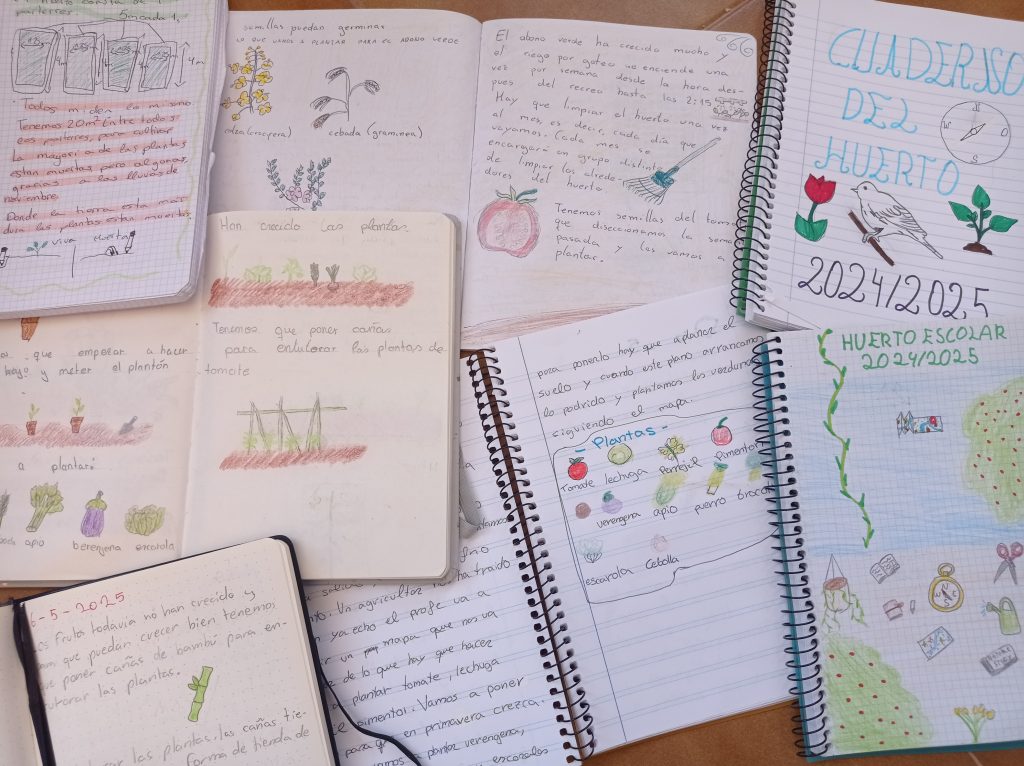 5m cada 1.
4m
Todos miden lo mismo
Tenemos 20m² Entre todos
los parterres, para cultivar
la mayoria de las plantas
estan muertas, pero algonas,
gracias a las lluvias de
noviembre.
Donde la tierra esta mas
dura las plantas estan muertas.
viva muerta
semillas puedan germinar
LO QUE VAMOS A PLANTAR PARA EL ABONO VERDE
cebada (graminea)
El abono verde ha crecido mucho y
el riego por goteo se enciende una
vez por semana desde la hora des-
pues del recreo hasta las 2:15
Hay que limpiar el huerto una vez
al mes, es decir, cada día que
vayamos. Cada mes se
encargará un grupo distinto
de limpiar los alrede-
dores del huerto
Tenemos semillas del tom
que diseccionamos la sema
pasada y las vamos a
plantar.
CUADERNO
DEL
HUERTO
N
E
S
O
2024/2025
Han crecido las plantas
Tenemos que poner cañas
para entutorar las plantas de
tomate
que empezar a hacer
hoyo y meter el plantón
a plantaré
apio berengena escarola
6-5-2025
os fruto todavia no han crecido y
que puedan crecer bien tenemos
ue poner cañas de bambú para en-
tutorar las plantas.
las plantas, las cañas tie-
forma de tienda de
para ponerlo hay que aplanar el
suelo y cuando este plano arrancamos
lo podrido y plantamos las verduras
siguiendo el mapa.
- Plantas -
Tomate lechuga Perrejil Pimento
verengena apio puerro brocol
escarola Cebolla
Un agricultor ha traido
ya echo el profe va a
un mapa que nos va
de lo que hay que hacer
plantar tomate, lechuga
pimentos. Vamos a poner
para que en primavera crezca.
a plantar verengena,
escarolas
HUERTO ESCOLAR
2024/2025